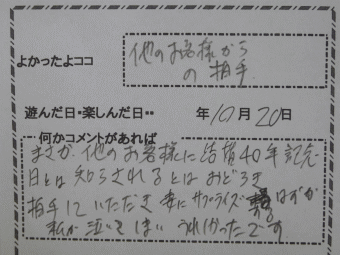 よかったよココ
他のお客様から
の拍手
遊んだ日・楽しんだ日・・ 年10月20日
何かコメントがあれば
まさか他のお客様に結婚40年記念
日とは知らされるとはおどろき
拍手していただき 妻にサプライズ はずが
私が泣いてしまい うれしかったです